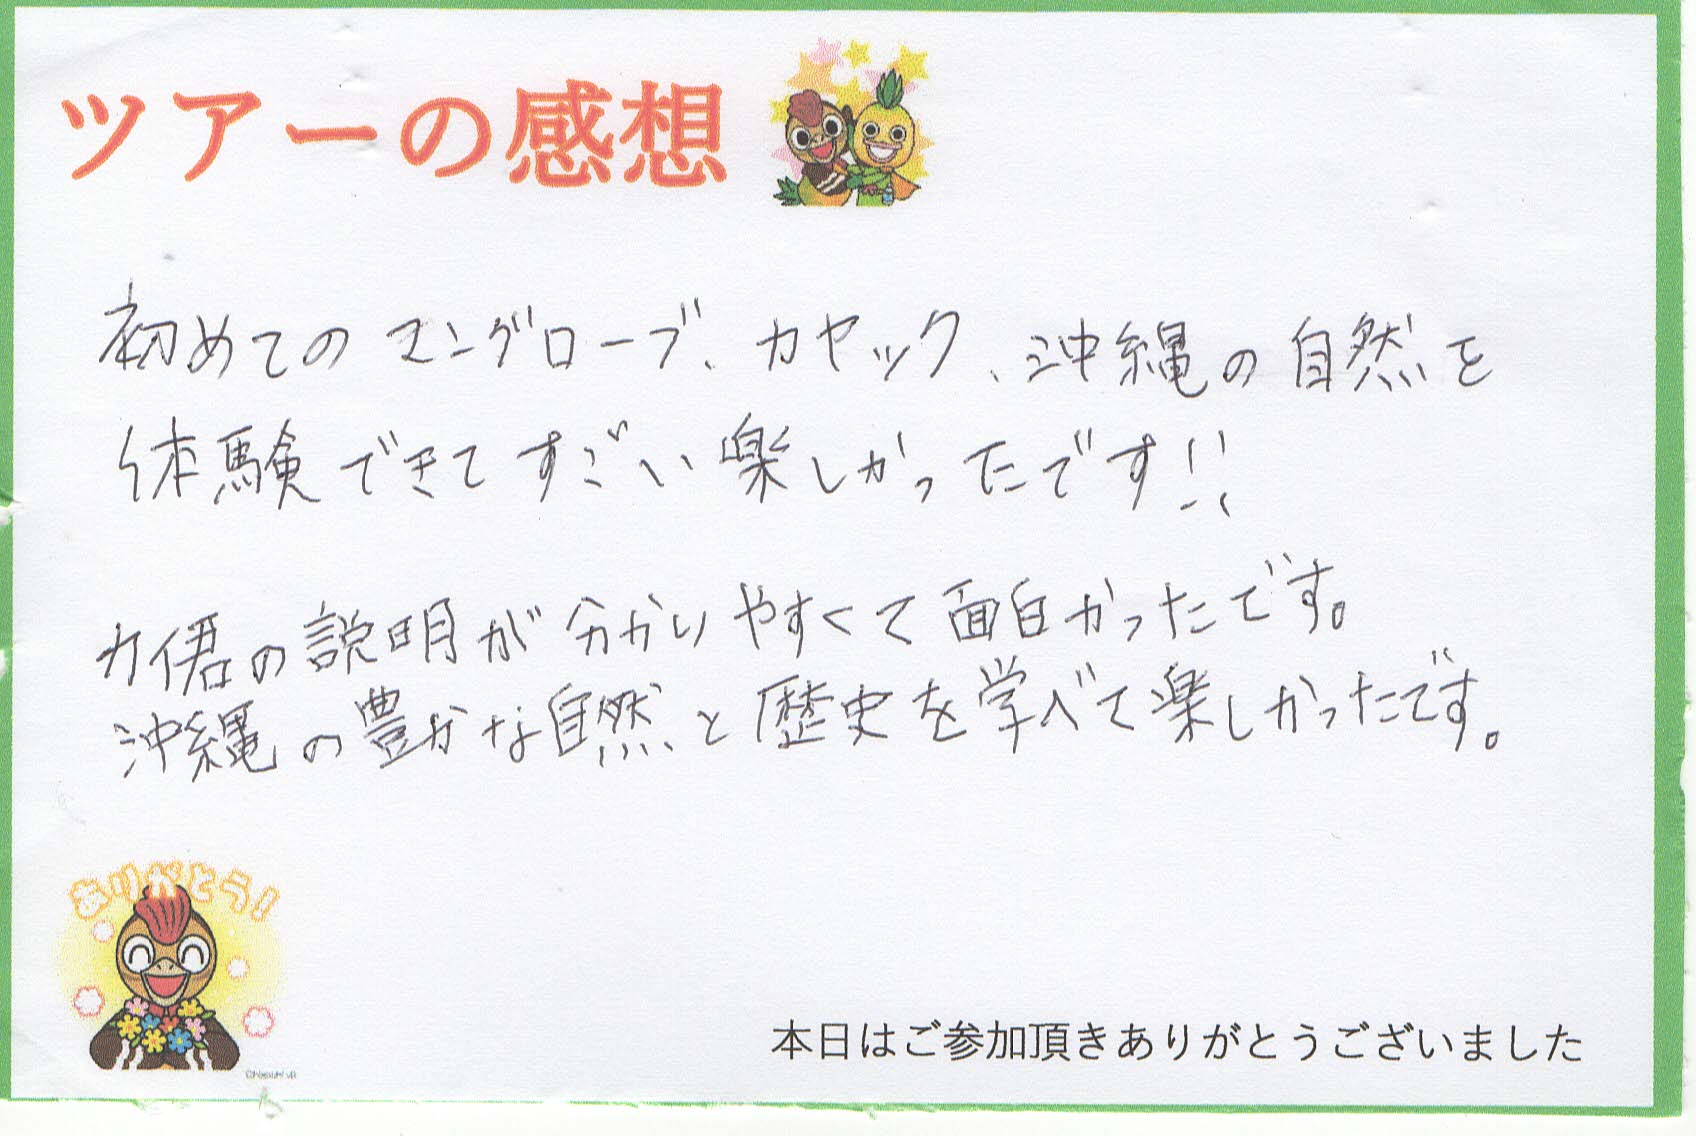 ツアーの感想
初めてのマングローブ、カヤック、沖縄の自然を
体験できてすごい楽しかったです!!
力君の説明が分かりやすくて面白かったです。
沖縄の豊かな自然と歴史を学べて楽しかったです。
ありがとう!
本日はご参加頂きありがとうございました